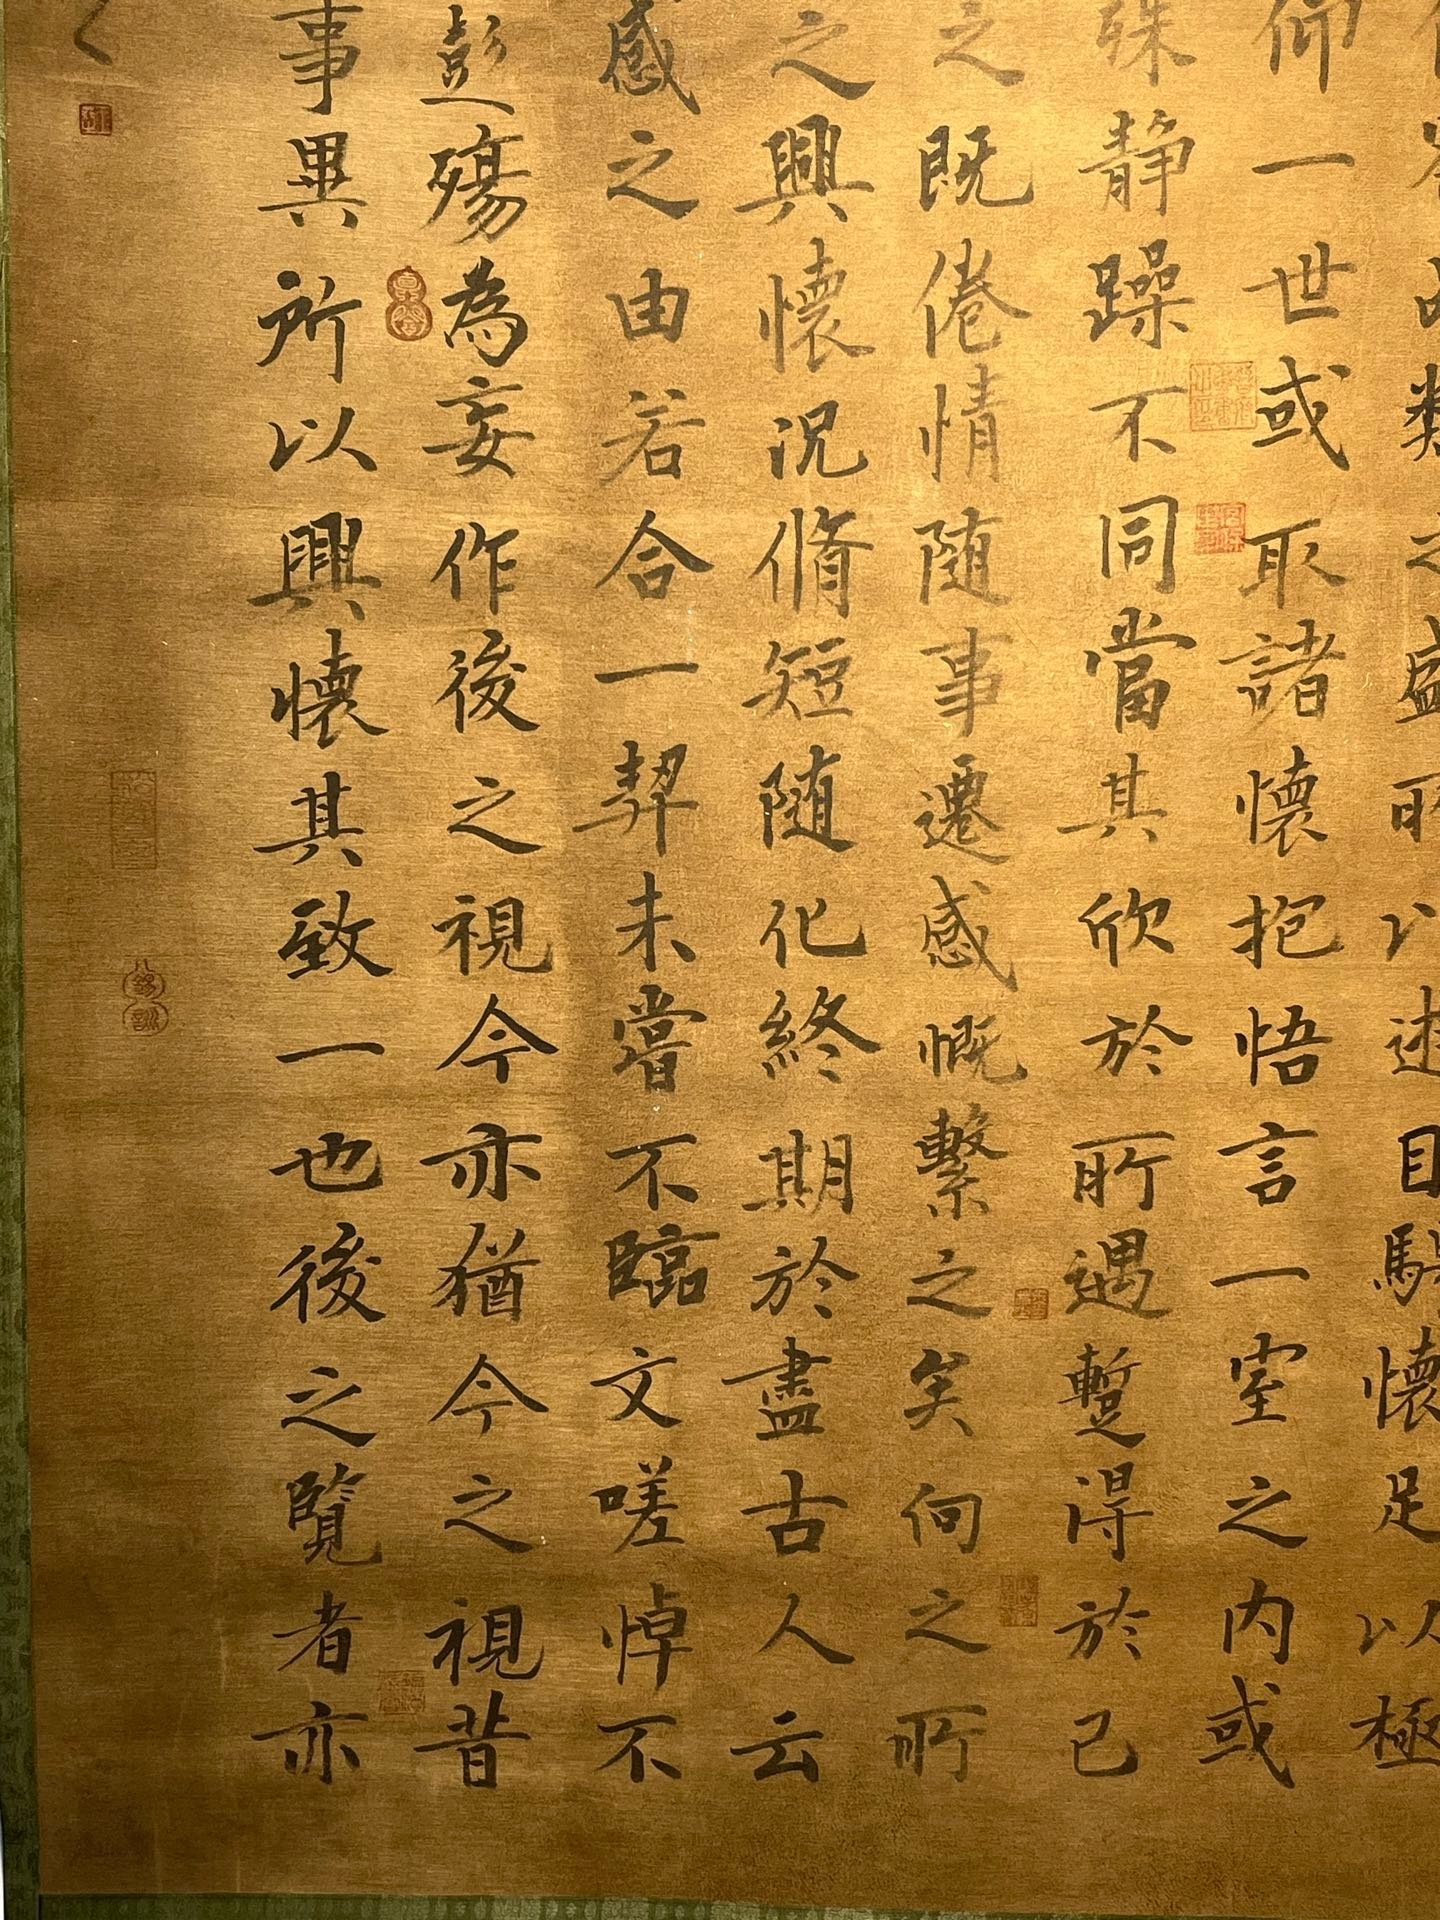 類之盛所以遊目騁懷足以極
仰一世或取諸懷抱悟言一室之内或
殊静躁不同當其欣於所遇蹔得於己
之既倦情随事遷感慨繫之矣向之所
之興懷況脩短随化終期於盡古人云
感之由若合一契未嘗不臨文嗟悼不
彭殤為妄作後之視今亦猶今之視昔
事異所以興懷其致一也後之覽者亦